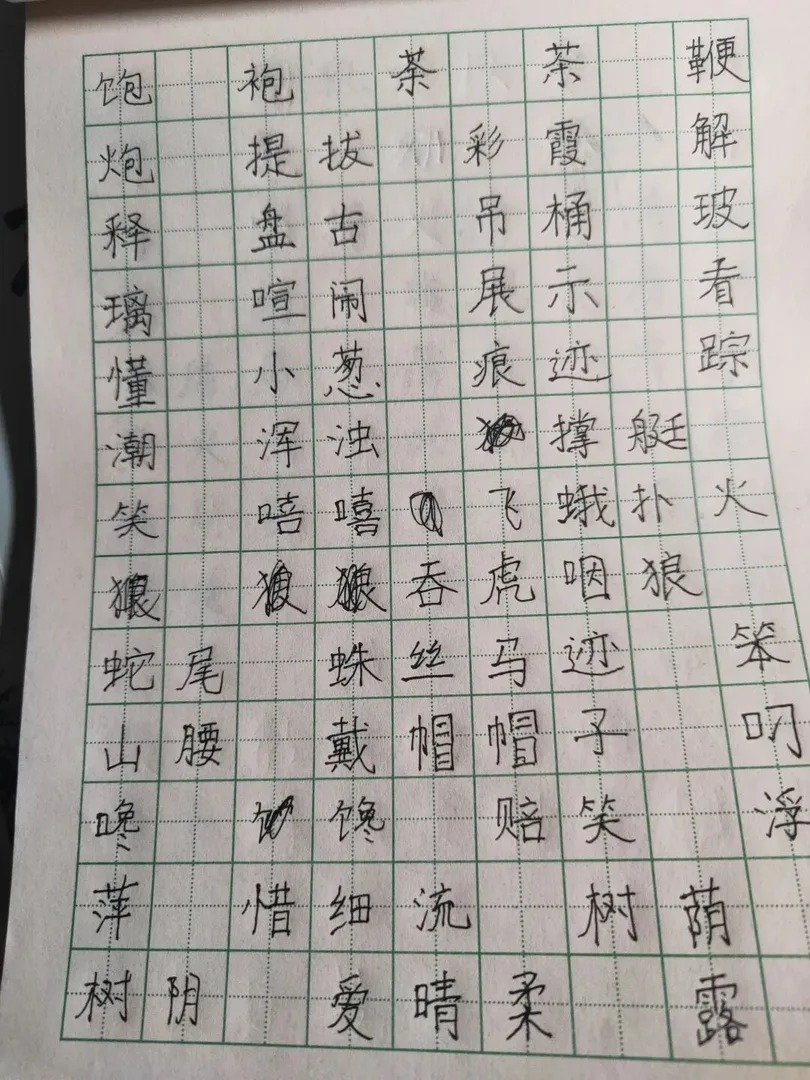 饱 袍 荼 茶 鞭
炮 提拔 彩霞 解
释 盘古 吊桶 玻
璃 喧闹 展示 看
懂 小葱 痕迹 踪
潮 浑浊 撑艇
笑 嘻嘻 飞蛾扑火
吞虎咽狼
蛇尾 蛛丝马迹 笨
山腰 戴帽帽子 叼
嚵 馋 赔笑 浮
萍 惜细流 树荫
树阴 爱晴柔 露